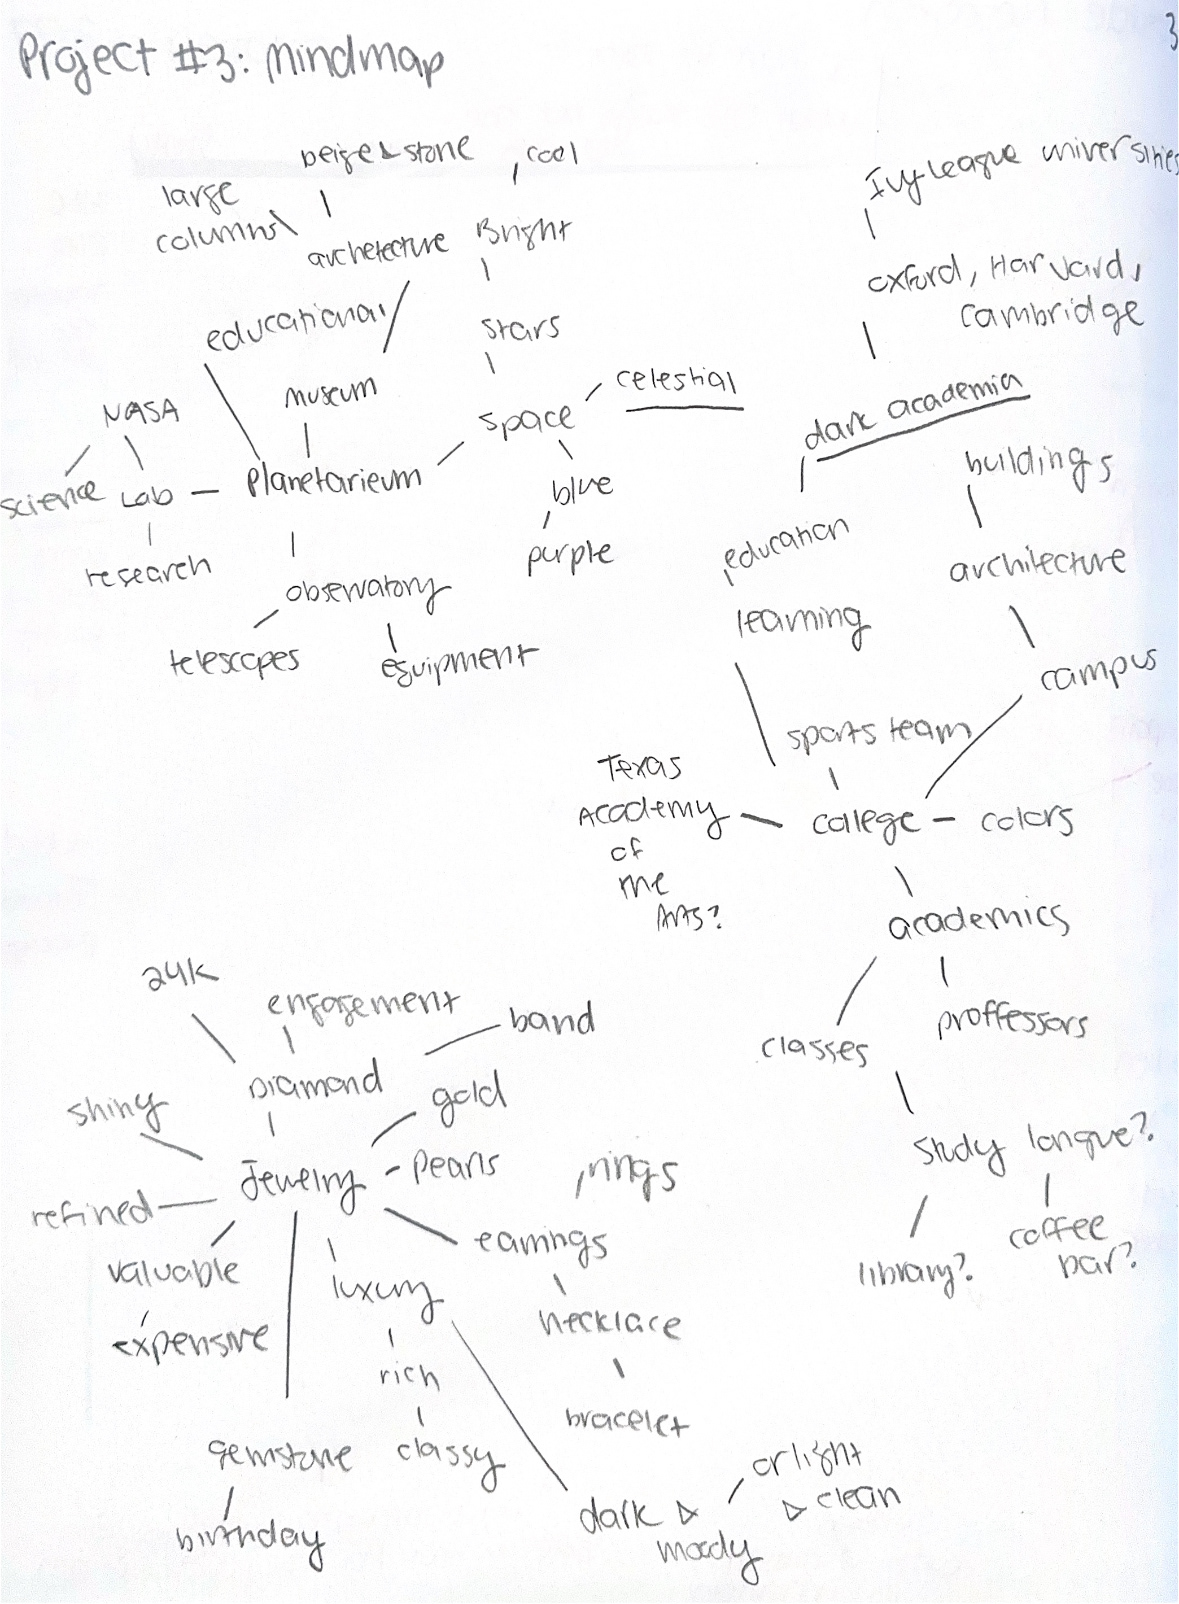 Project #3: Mindmap
3
beige & stone
cool
large
columns
archetecture
Bright
educational
stars
museum
NASA
space
celestial
science Lab
Planetarieum
blue
purple
research
observatory
telescopes
equipment
Ivy league universities
oxford, Harvard,
Cambridge
dark academia
buildings
education
architecture
learning
campus
sports team
Texas
Academy
of
the
Arts?
college
colors
academics
classes
proffessors
study longue?
library?
coffee
bar?
24K
engagement
band
Diamond
gold
shiny
Jewelry
Pearls
rings
refined
earrings
valuable
luxury
expensive
necklace
rich
bracelet
gemstone
classy
birthday
dark &
moody
or light
& clean